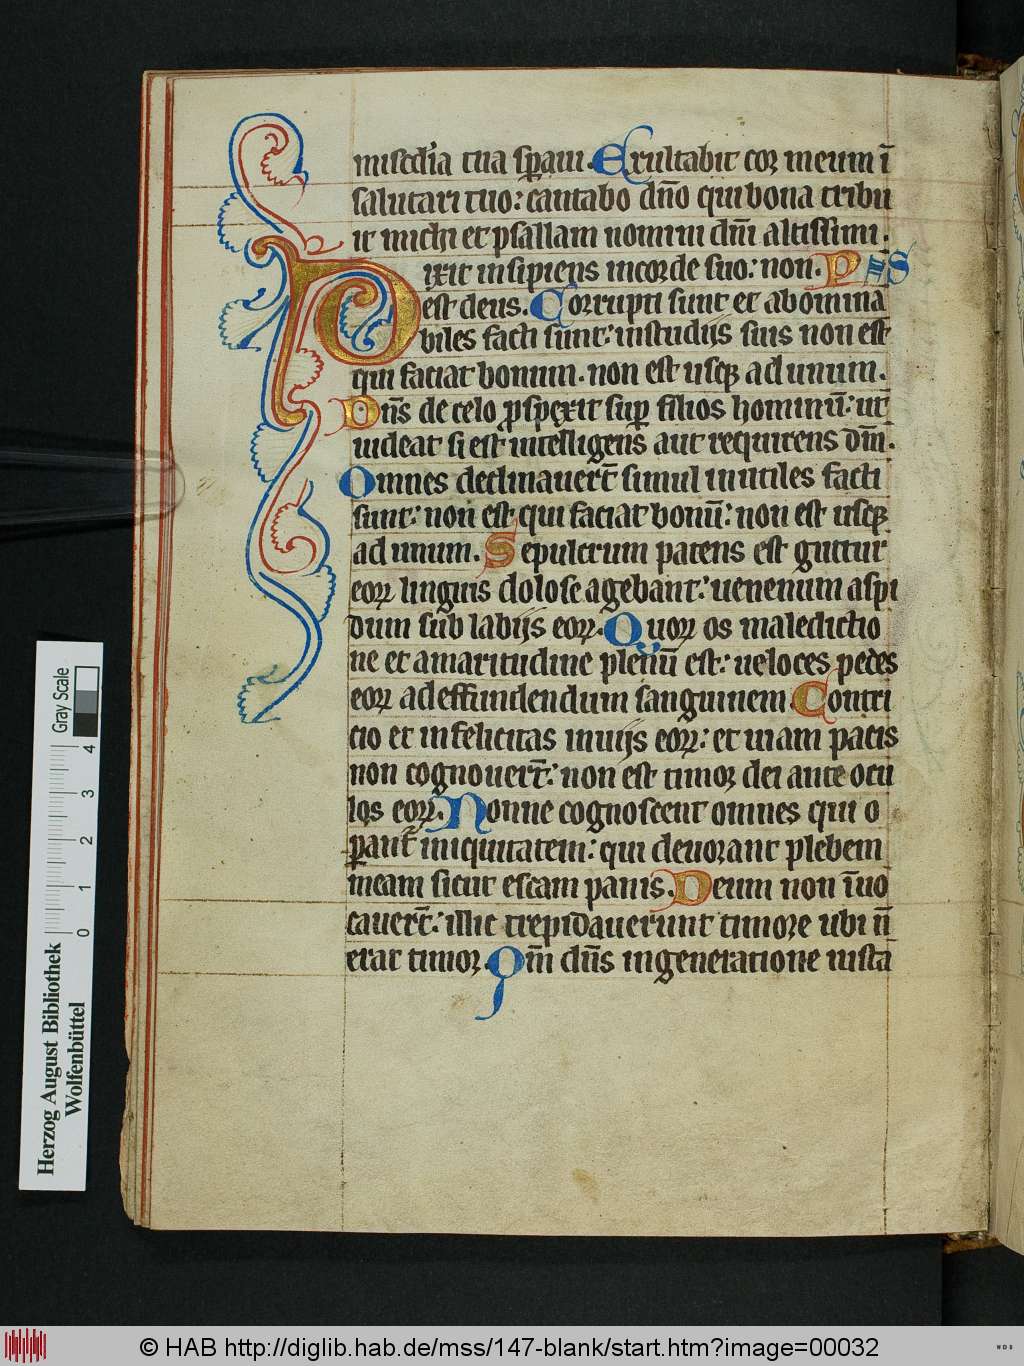 misc̄dia tua sꝑaui. Exultabit coꝛ meum ī
salutari tuo: cantabo dn̄o qui bona tribu
it michi et psallam nomini dn̄i altissimi.
Dixit insipiens incoꝛde suo: non. PS̄
est deus. Coꝛrupti sunt et abomina
biles facti sunt: instudijs suis non est
qui faciat bonum. non est usqꝫ adunum.
Dn̄s de celo ꝓspexit suꝑ filios hominū: ut
uideat si est intelligens aut requirens dm̄.
Omnes declinauer̄t simul inutiles facti
sunt: non est qui faciat bonū: non est usqꝫ
ad unum. Sepulcrum patens est guttur
eoꝝ linguis dolose agebant: uenenum aspi
dum sub labijs eoꝝ. Quoꝝ os maledictio
ne et amaritudine plenū est: ueloces pedes
eoꝝ adeffundendum sanguinem Contri
cio et infelicitas inuijs eoꝝ: et uiam pacis
non cognouer̄t: non est timoꝛ dei ante ocu
los eoꝝ. Nonne cognoscent omnes qui o
ꝑant̄ iniquitatem: qui deuoꝛant plebem
meam sicut escam panis. Deum non īuo
cauer̄t: illic trepidauerunt timoꝛe ubi n̄
erat timoꝛ. Qm̄ dn̄s ingeneratione iusta
Herzog August Bibliothek
Wolfenbüttel
0 1 2 3 4
Gray Scale
© HAB http://diglib.hab.de/mss/147-blank/start.htm?image=00032